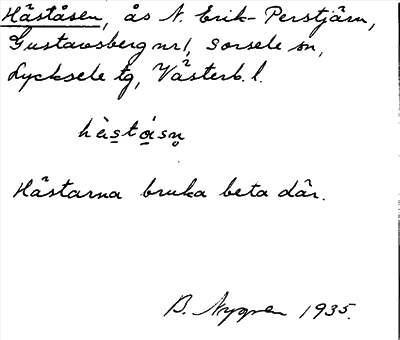 Häståsen, ås N. Erik-Perstjärn,
Gustavsberg nr 1, Sorsele sn,
Lycksele tg, Västerb. l.
hàstásn̥
Hästarna bruka beta där.
B. Nygren 1935.